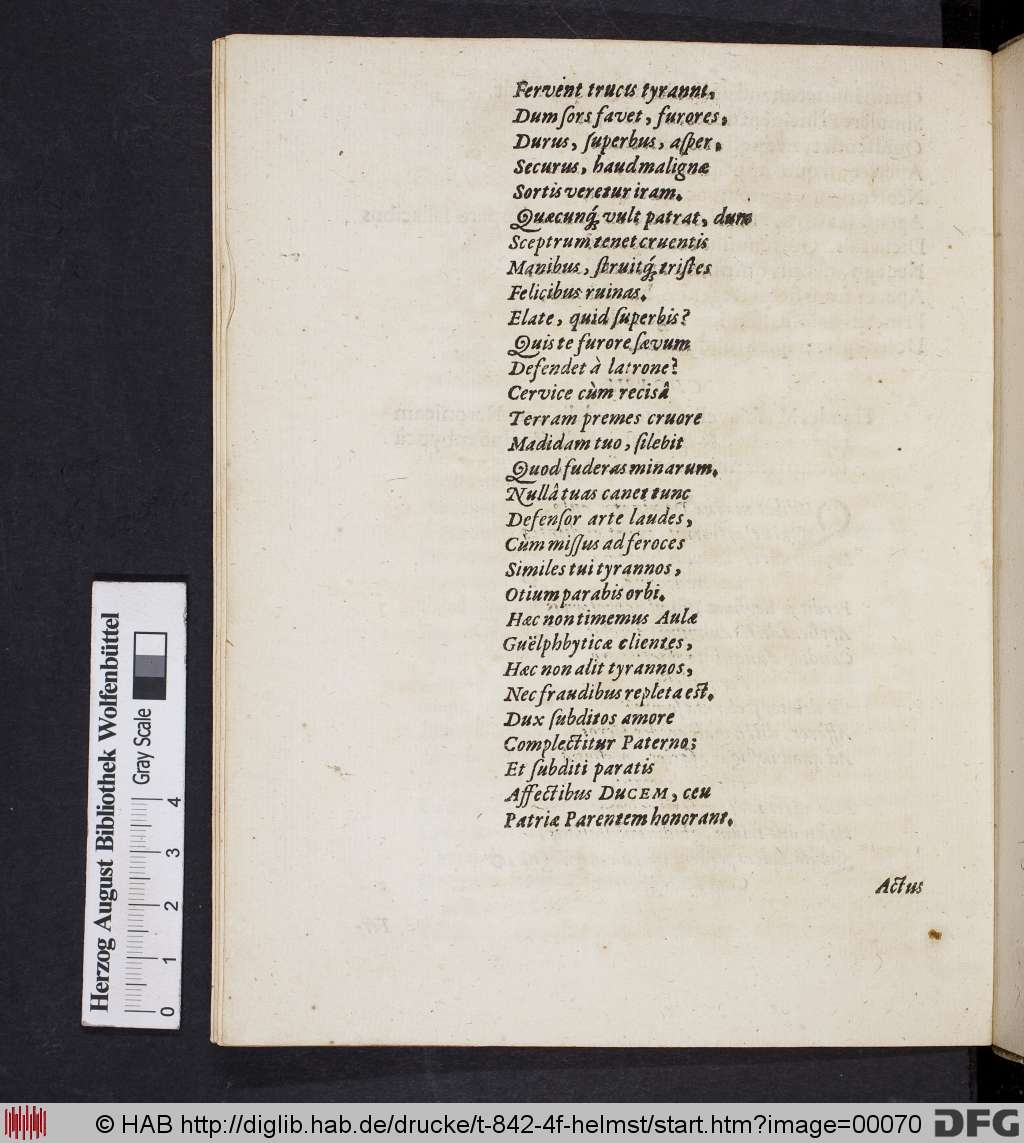 Fervent trucis tyranni,
Dum ſors favet, furores,
Durus, ſuperbus, aſper,
Securus, haud malignæ
Sortis veretur iram.
Quæcunq́; vult patrat, dum
Sceptrum tenet cruentis
Manibus, ſtruitq́; triſtes
Felicibus ruinas.
Elate, quid ſuperbis?
Quis te furore ſævum
Defendet à latrone?
Cervice cùm recisâ
Terram premes cruore
Madidam tuo, ſilebit
Quod fuderas minarum.
Nullâ tuas canet tunc
Defenſor arte laudes,
Cùm miſſus ad feroces
Similes tui tyrannos,
Otium parabis orbi.
Hæc non timemus Aulæ
Guëlphbyticæ clientes,
Hæc non alit tyrannos,
Nec fraudibus repleta est.
Dux ſubditos amore
Complectitur Paterno;
Et ſubditi paratis
Affectibus DUCEM, ceu
Patriæ Parentem honorant.
Actus
Herzog August Bibliothek Wolfenbüttel
Gray Scale
0 1 2 3 4
© HAB http://diglib.hab.de/drucke/t-842-4f-helmst/start.htm?image=00070
DFG